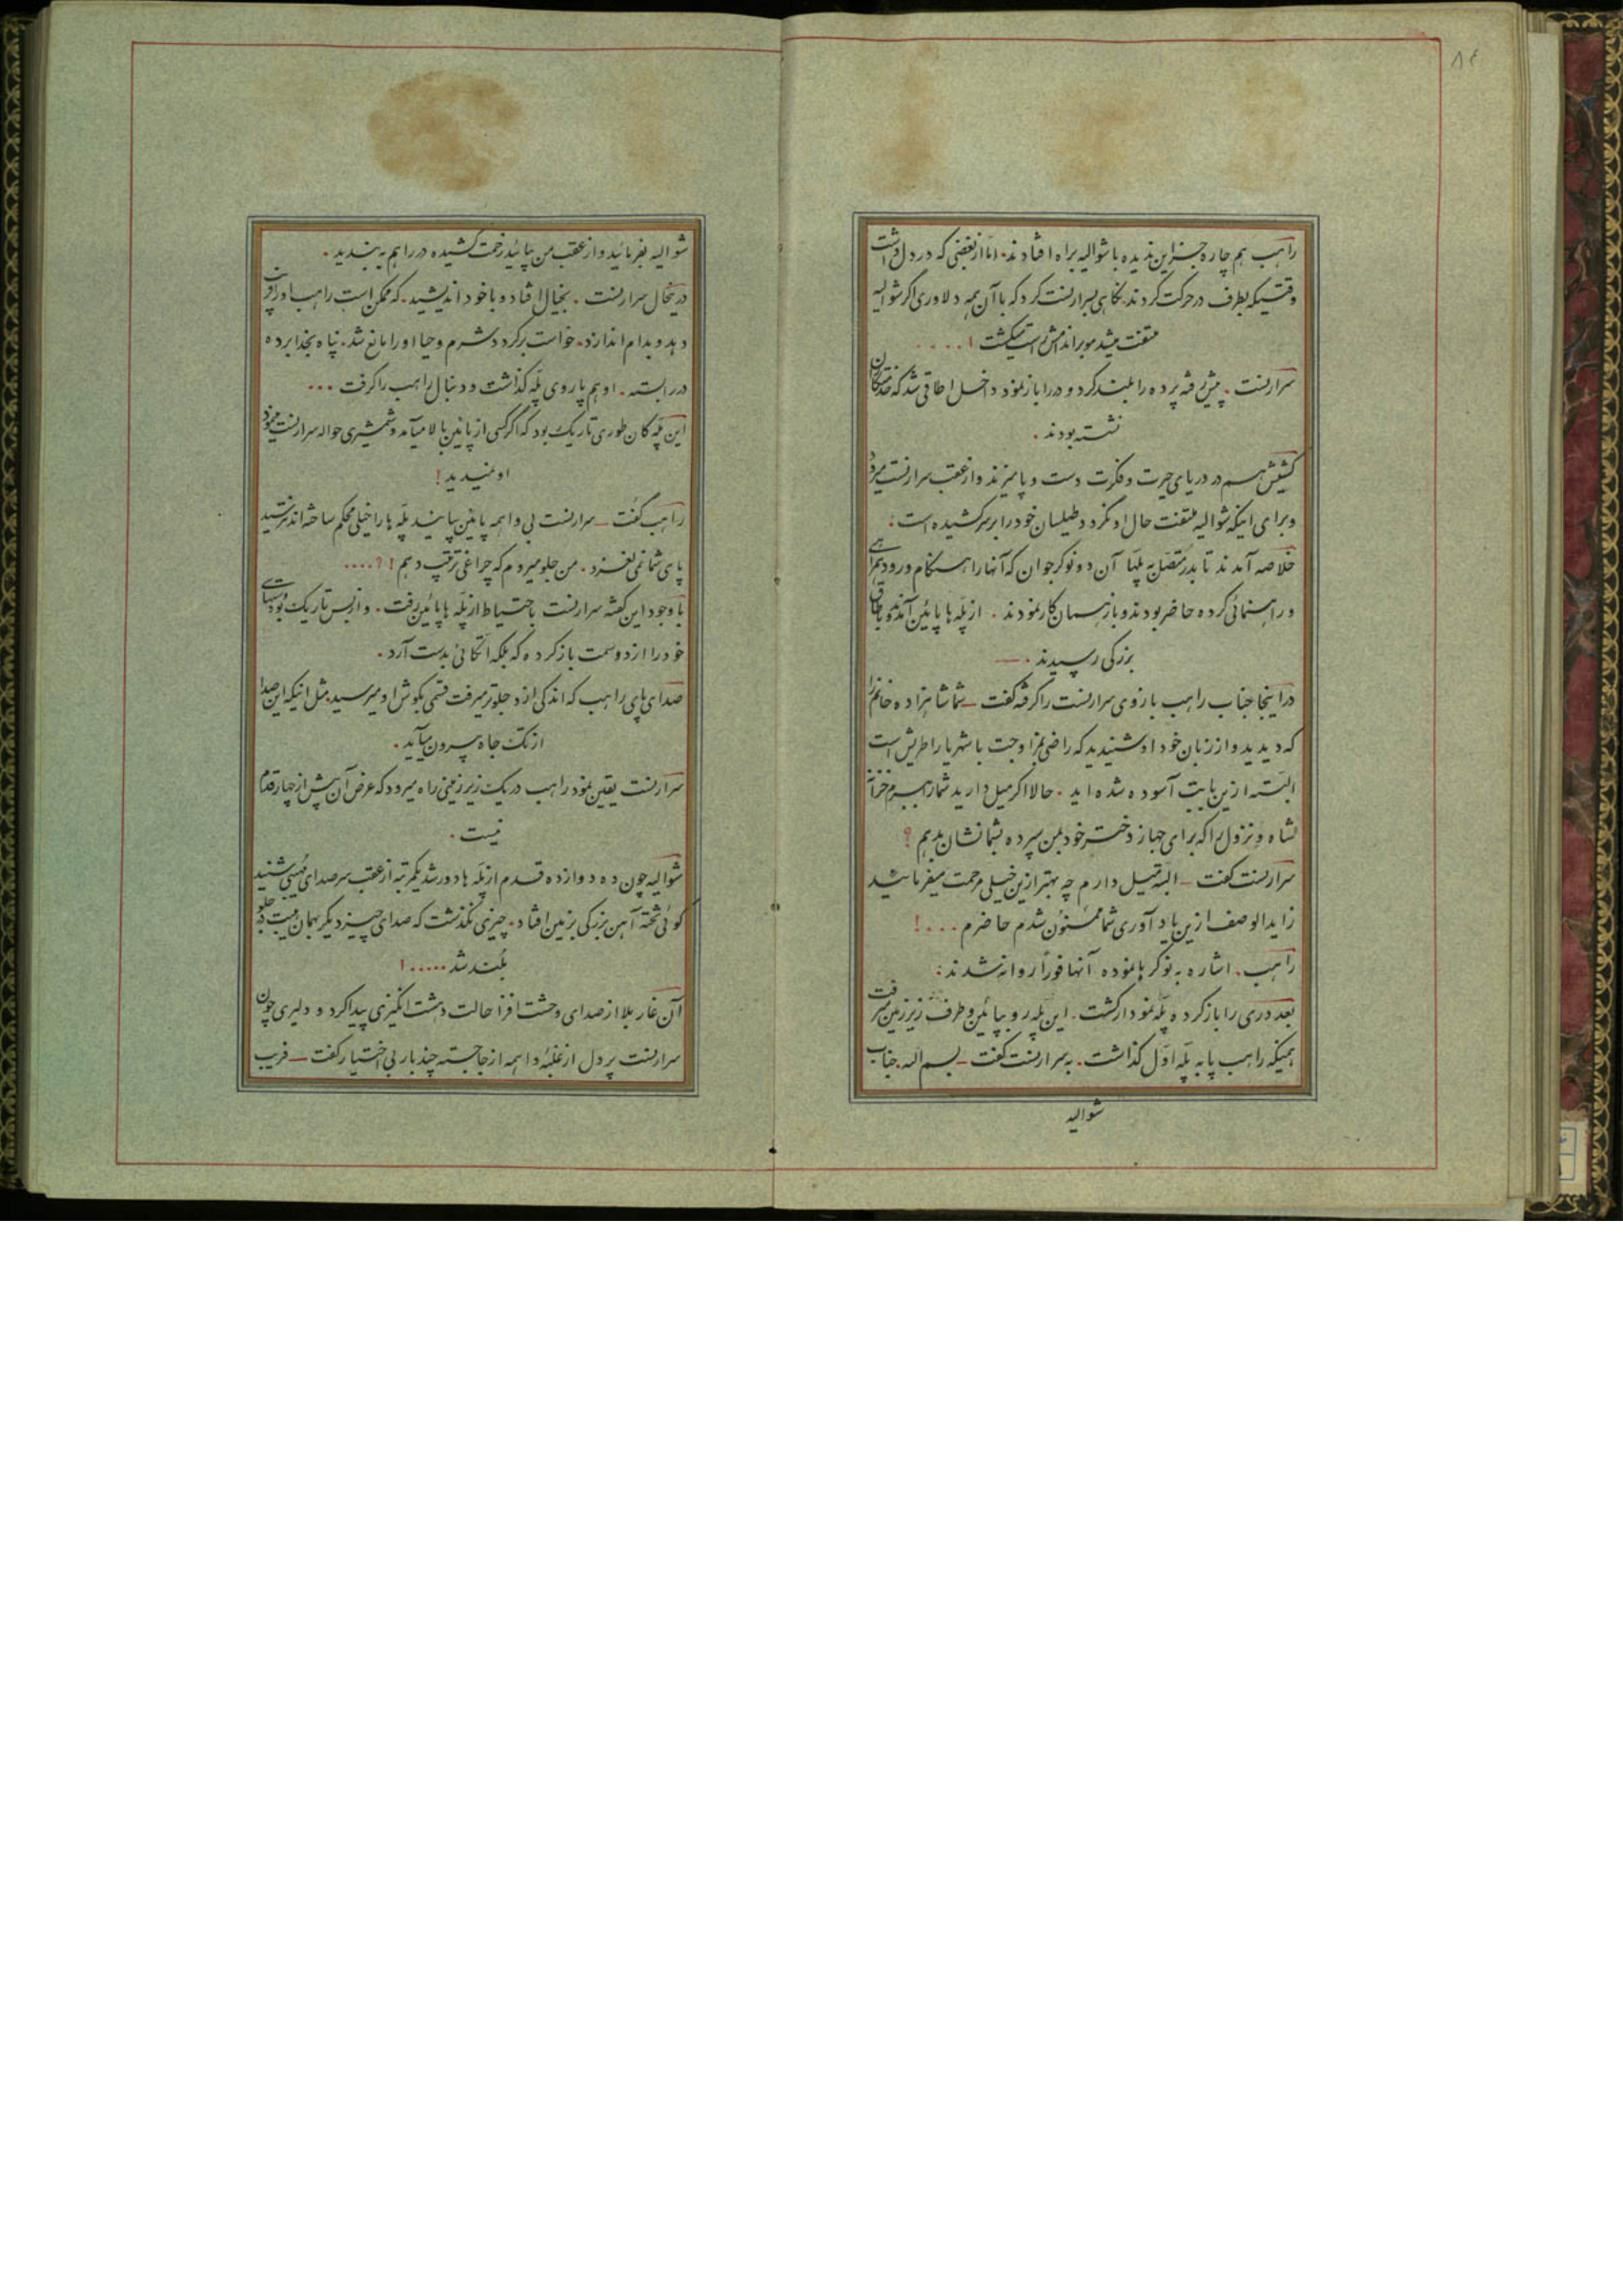 ۸۴
راهب هم چاره جز این ندیده با شوالیه براه افتادند. اما از بغضی که در دل داشت
وقتیکه بطرف در حرکت کردند نگاهی بسرارنست کرد که با آن همه دلاوری اگر شوالیه
ملتفت میشد مو بر اندامش راست میگشت ! ....
سرارنست . پیش رفته پرده را بلند کرد و در را باز نمود داخل اطاقی شد که خدمتکاران
نشسته بودند .
کشیش هم در دریای حیرت و فکرت دست و پا میزند و از عقب سرارنست میرود
و برای اینکه شوالیه ملتفت حال او نگردد طیلسان خود را بر سر کشیده است :
خلاصه آمدند تا بدر متصل به پلها آن دو نوکر جوان که آنها را هنگام ورود همراهی
و راهنمائی کرده حاضر بودند و باز همان کار نمودند . از پله ها پائین آمده و باطاق
بزرگی رسیدند . —
در اینجا جناب راهب بازوی سرارنست را گرفته گفت — شما شاهزاده خانم را
که دیدید و از زبان خود او شنیدید که راضی بمزاوجت با شهریار اطریش است
البته ازین بابت آسوده شده اید . حالا اگر میل دارید شما را ببرم خزانه
شاه ونزول را که برای جهاز دختر خود بمن سپرده بشما نشان بدهم ؟
سرارنست گفت — البته میل دارم چه بهتر ازین خیلی مرحمت میفرمائید
زاید الوصف ازین یادآوری شما ممنون شدم حاضرم .... !
راهب . اشاره به نوکرها نموده آنها فوراً روانه شدند :
بعد دری را باز کرده پله نمودار گشت . این پله رو بپائین و طرف زیر زمین میرفت
همینکه راهب پا به پله اول گذاشت . به سرارنست گفت — بسم الله . جناب
شوالیه
شوالیه بفرمائید و از عقب من بیائید زحمت کشیده در را هم به بندید .
درینحال سرارنست . بخیال افتاد و با خود اندیشید . که ممکن است راهب او را فریب
دهد و بدام اندازد . خواست برگردد شرم و حیا او را مانع شد . پناه بخدا برده
در را بسته . او هم پا روی پله گذاشت و دنبال راهب را گرفت ...
این پله کان طوری تاریک بود که اگر کسی از پائین بالا میآمد و شمشیری حواله سرارنست مینمود
او نمیدید !
راهب گفت — سرارنست بی واهمه پائین بیائید پله ها را خیلی محکم ساخته اند نترسید
پای شما نمی لغزد . من جلو میروم که چراغی ترتیب دهم ! ? ....
با وجود این گفته سرارنست با احتیاط از پله ها پائین رفت . و از بس تاریک بود دستهای
خود را از دو سمت باز کرده که بلکه اتکائی بدست آرد .
صدای پای راهب که اندکی از او جلوتر میرفت قسمی بگوش او میرسید مثل اینکه این صدا
از تک چاه بیرون میآید .
سرارنست یقین نمود راهب در یک زیرزمینی راه میرود که عرض آن بیش از چهار قدم
نیست .
شوالیه چون ده دوازده قدم از پله ها دور شد یکمرتبه از عقب سر صدای مهیبی شنید
گوئی تخته آهن بزرگی بزمین افتاد . چیزی نگذشت که صدای چیز دیگر بهمان هیبت در جلو
بلند شد ..... !
آن غار بلا از صدای وحشت افزا حالت دهشت انگیزی پیدا کرد و دلیری چون
سرارنست پر دل از غلبه واهمه از جا جسته چند بار بی اختیار گفت — فریب